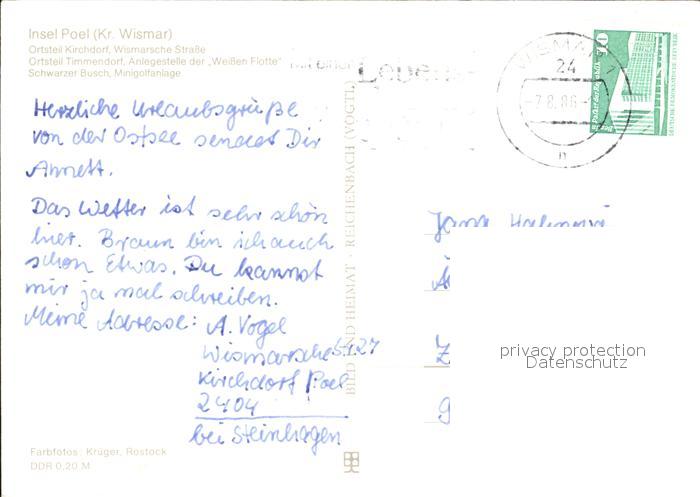 Insel Poel (Kr. Wismar)
Ortsteil Kirchdorf, Wismarsche Straße
Ortsteil Timmendorf, Anlegestelle der „Weißen Flotte"
Schwarzer Busch, Minigolfanlage
Herzliche Urlaubsgrüße
von der Ostsee sendet Dir
Annett.
Das Wetter ist sehr schön
hier. Braun bin ich auch
schon Etwas. Du kannst
mir ja mal schreiben.
Meine Adresse: A. Vogel
Wismarsche
Kirchdorf Poel
2404
bei Steinhagen
Farbfotos: Krüger, Rostock
DDR 0,20 M
BILD UND HEIMAT · REICHENBACH (VOGTL
WISMAR
24
-7.8.86-
n
10
Berlin Palast der Republik
privacy protection
Datenschutz